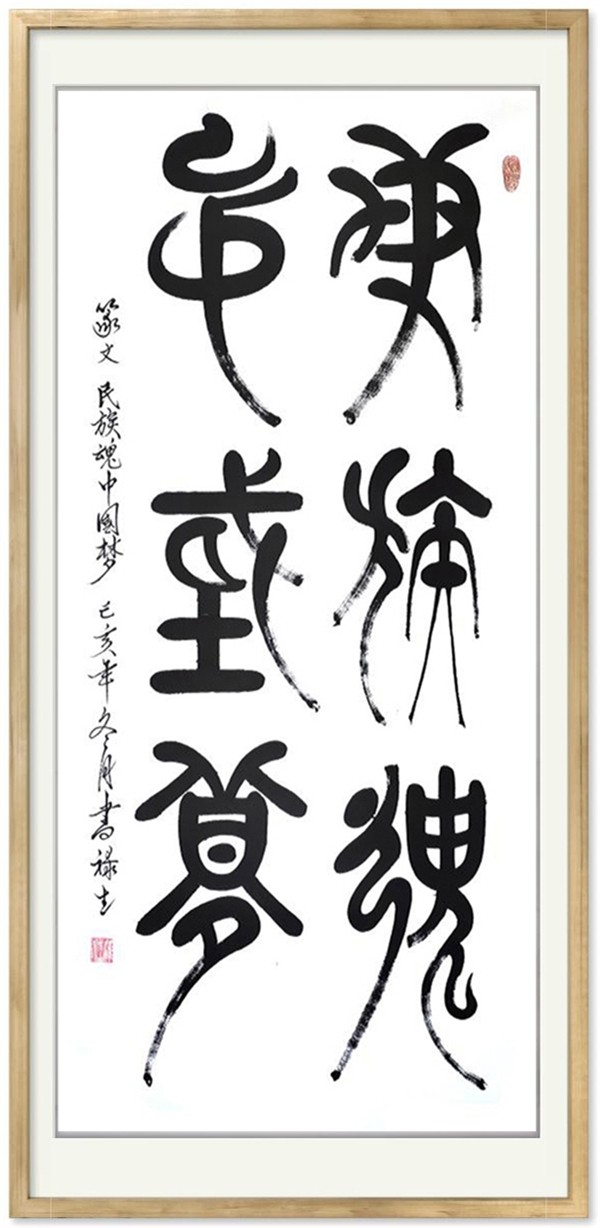 民族魂
中国梦
篆文 民族魂中国梦 己亥年冬月书禄生